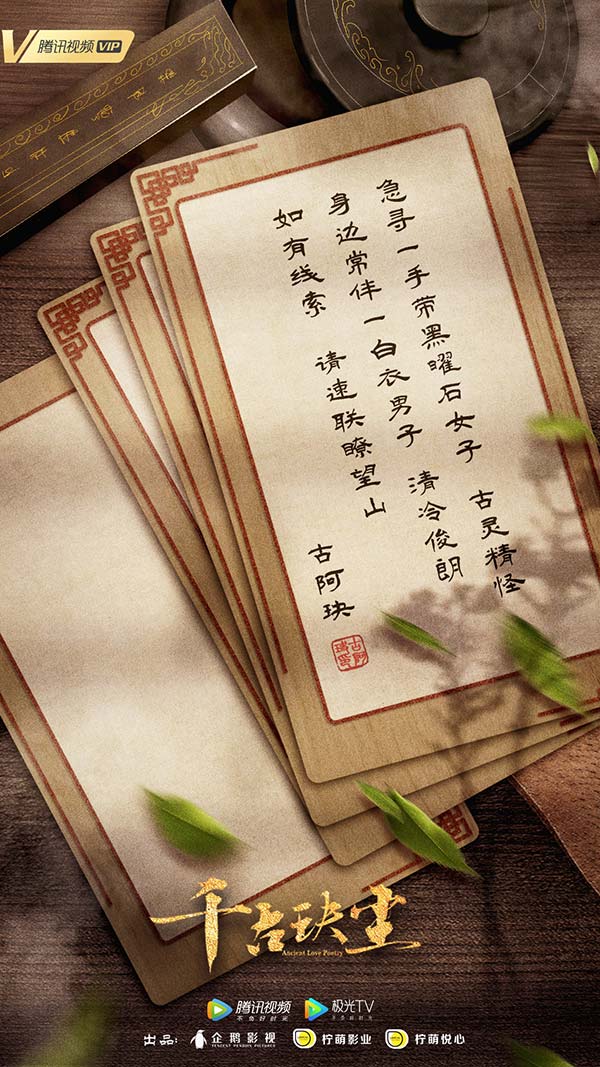 腾讯视频 VIP
急寻一手带黑曜石女子 古灵精怪
身边常伴一白衣男子 清冷俊朗
如有线索 请速联瞭望山
古阿玦
千古玦尘
Ancient Love Poetry
腾讯视频 极光TV
不负好时光
出品： 企鹅影视 柠萌影业 柠萌悦心
TENCENT PENGUIN PICTURES